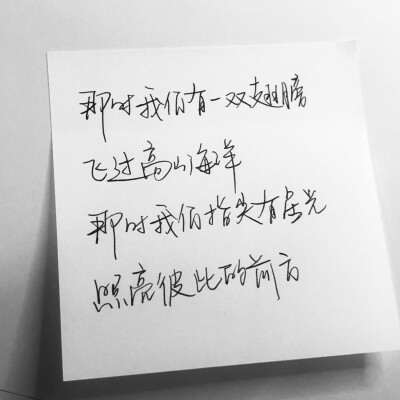 那时我们有一双翅膀
飞过高山海洋
那时我们指尖有星光
照亮彼此的前方